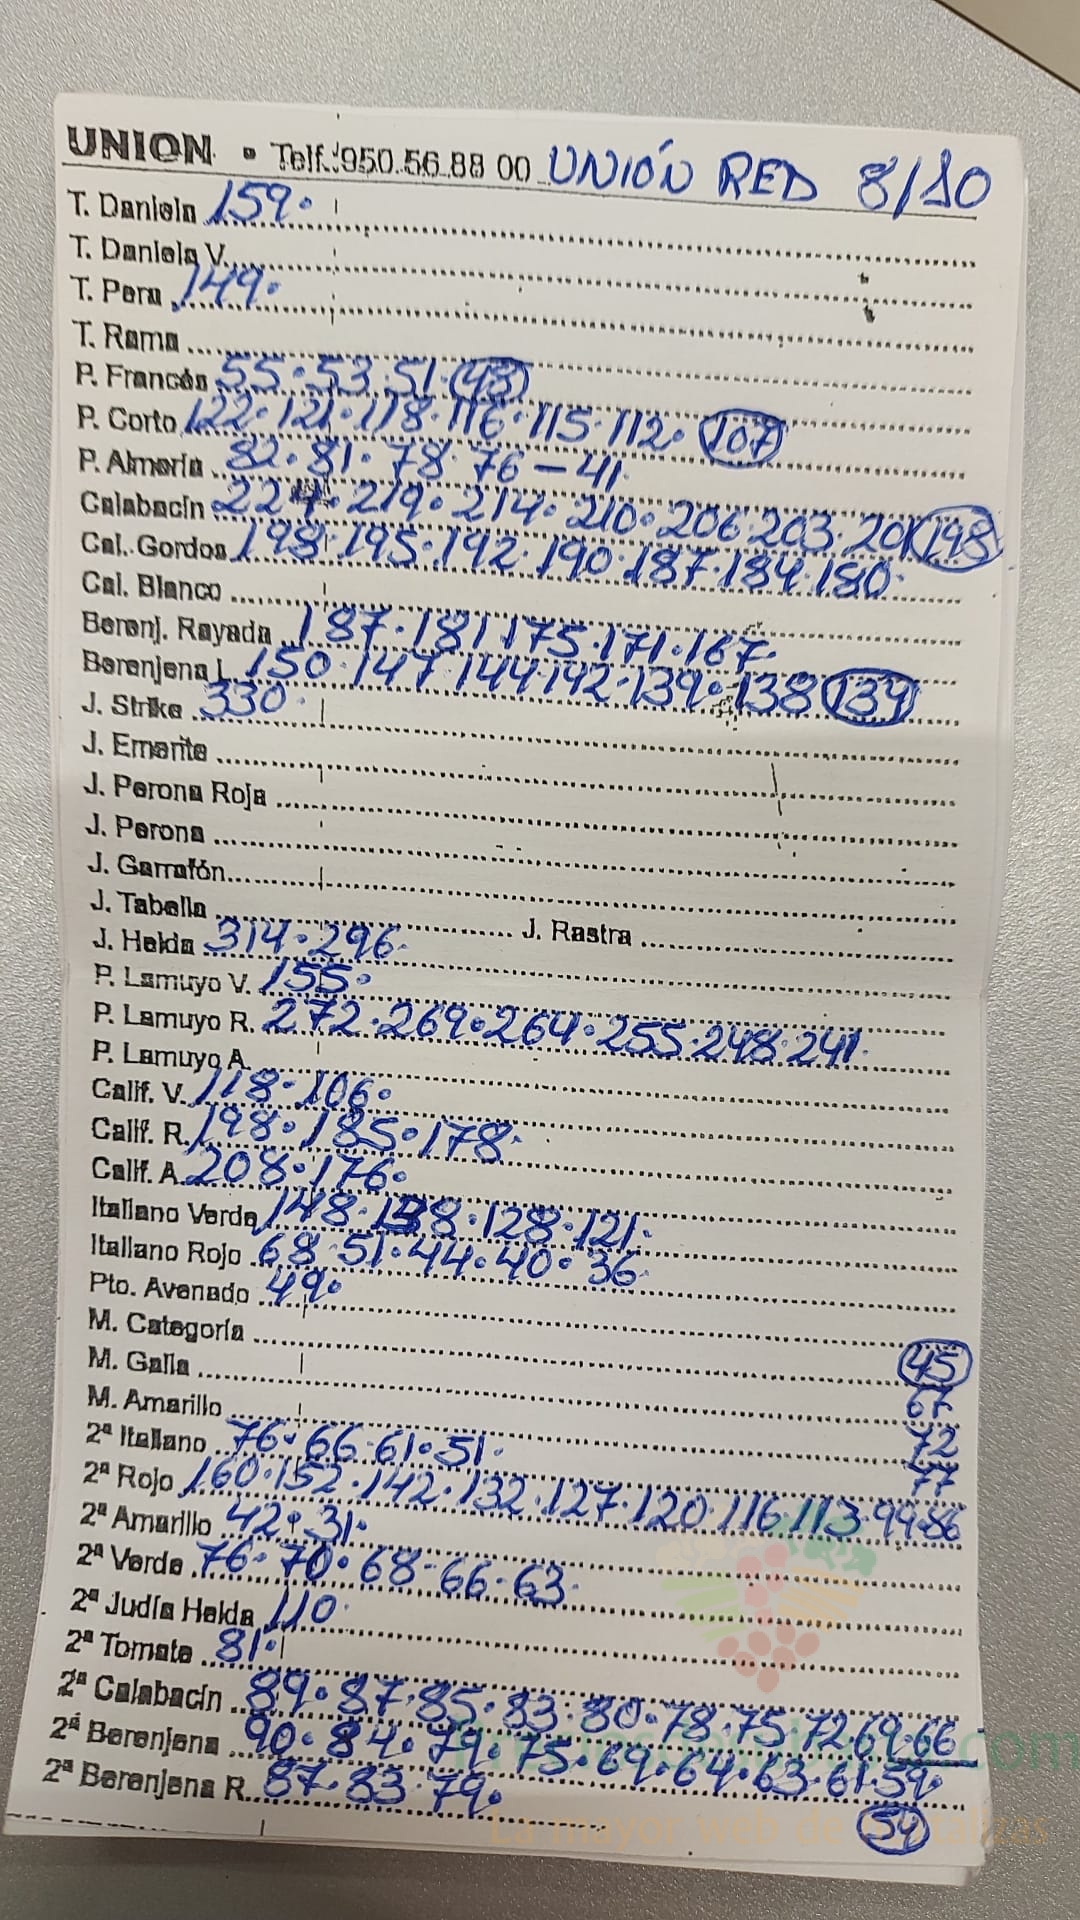 UNION • Telf.: 950.56.88 00 UNIÓN RED 8/10
T. Daniela 159.
T. Daniela V.
T. Pera 149.
T. Rama
P. Francés 55.53.51.(43)
P. Corto 122.121.118.116.115.112.(107)
P. Almería 82.81.78.76-41.
Calabacín 224.219.214.210.206.203.201(198)
Cal. Gordos 198.195.192.190.187.184.180.
Cal. Blanco
Berenj. Rayada 187.181.175.171.167.
Berenjena L. 150.147.144.142.139.138(134)
J. Strike 330.
J. Emerite
J. Perona Roja
J. Perona
J. Garrafón
J. Tabella J. Rastra
J. Helda 314.296.
P. Lamuyo V. 155.
P. Lamuyo R. 272.269.264.255.248.241.
P. Lamuyo A.
Calif. V. 118.106.
Calif. R. 198.185.178.
Calif. A. 208.176.
Italiano Verde 148.138.128.121.
Italiano Rojo 68.51.44.40.36.
Pto. Avenado 49.
M. Categoría
M. Galia (45)
M. Amarillo 67
2ª Italiano 76.66.61.51. 72
77
2ª Rojo 160.152.142.132.127.120.116.113.99.86
2ª Amarillo 42.31.
2ª Verde 76.70.68.66.63.
2ª Judía Helda 110.
2ª Tomate 81.
2ª Calabacín 89.87.85.83.80.78.75.72.69.66
2ª Berenjena 90.84.79.75.69.64.63.61.59.
2ª Berenjena R. 87.83.79. (54)
La mayor web de